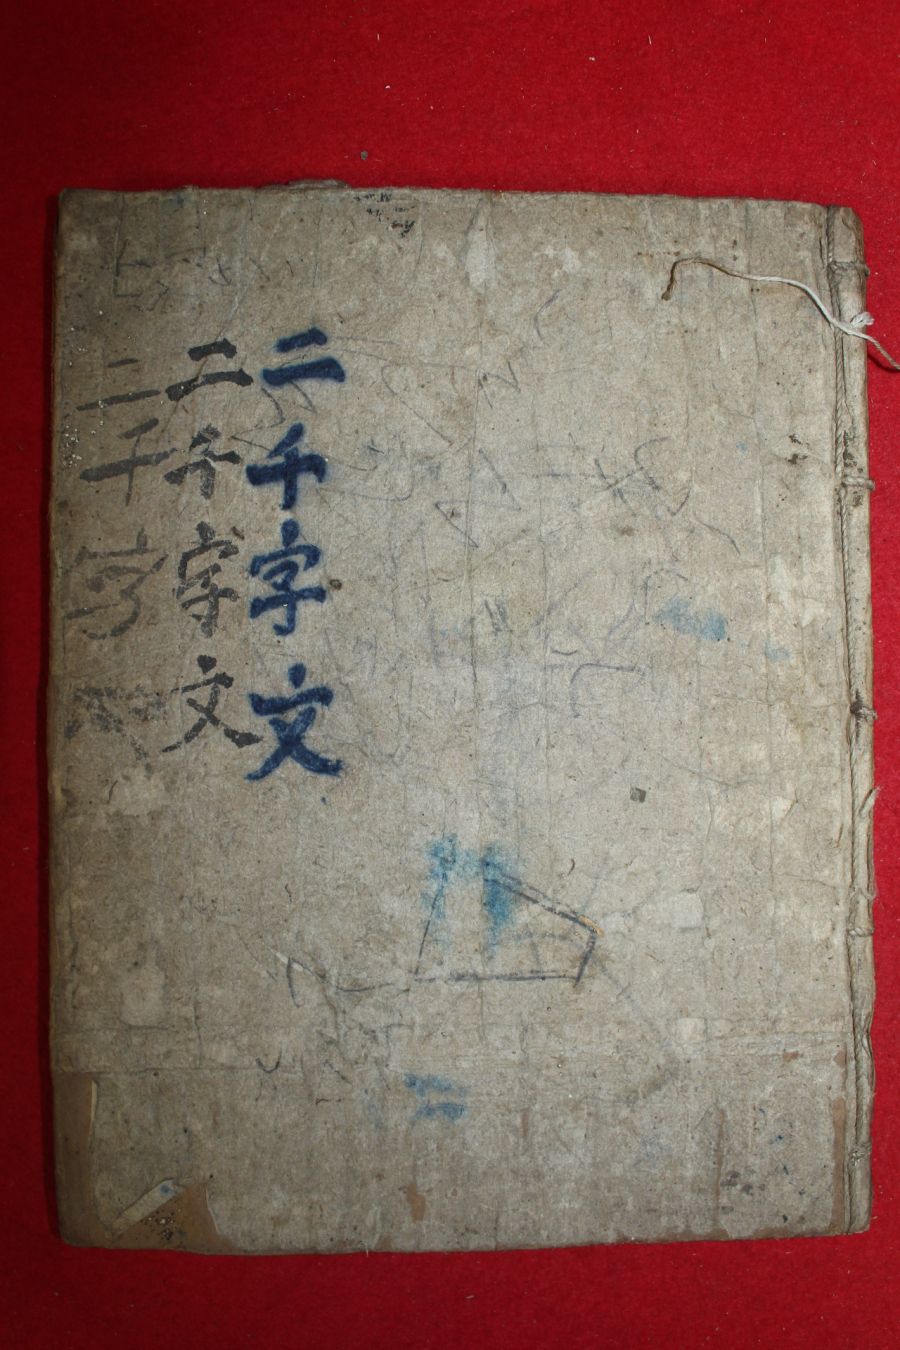 二千字文
二千字文
二千字文